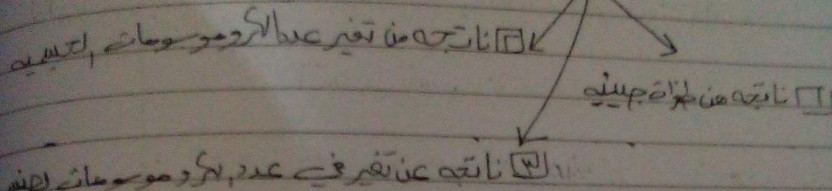 [٢] ناتجه من تغير عدد الكروموسومات الجسيه
[١] ناتجه من طفرات جينيه
[٣] ناتجه عن تغير في عدد الكروموسومات